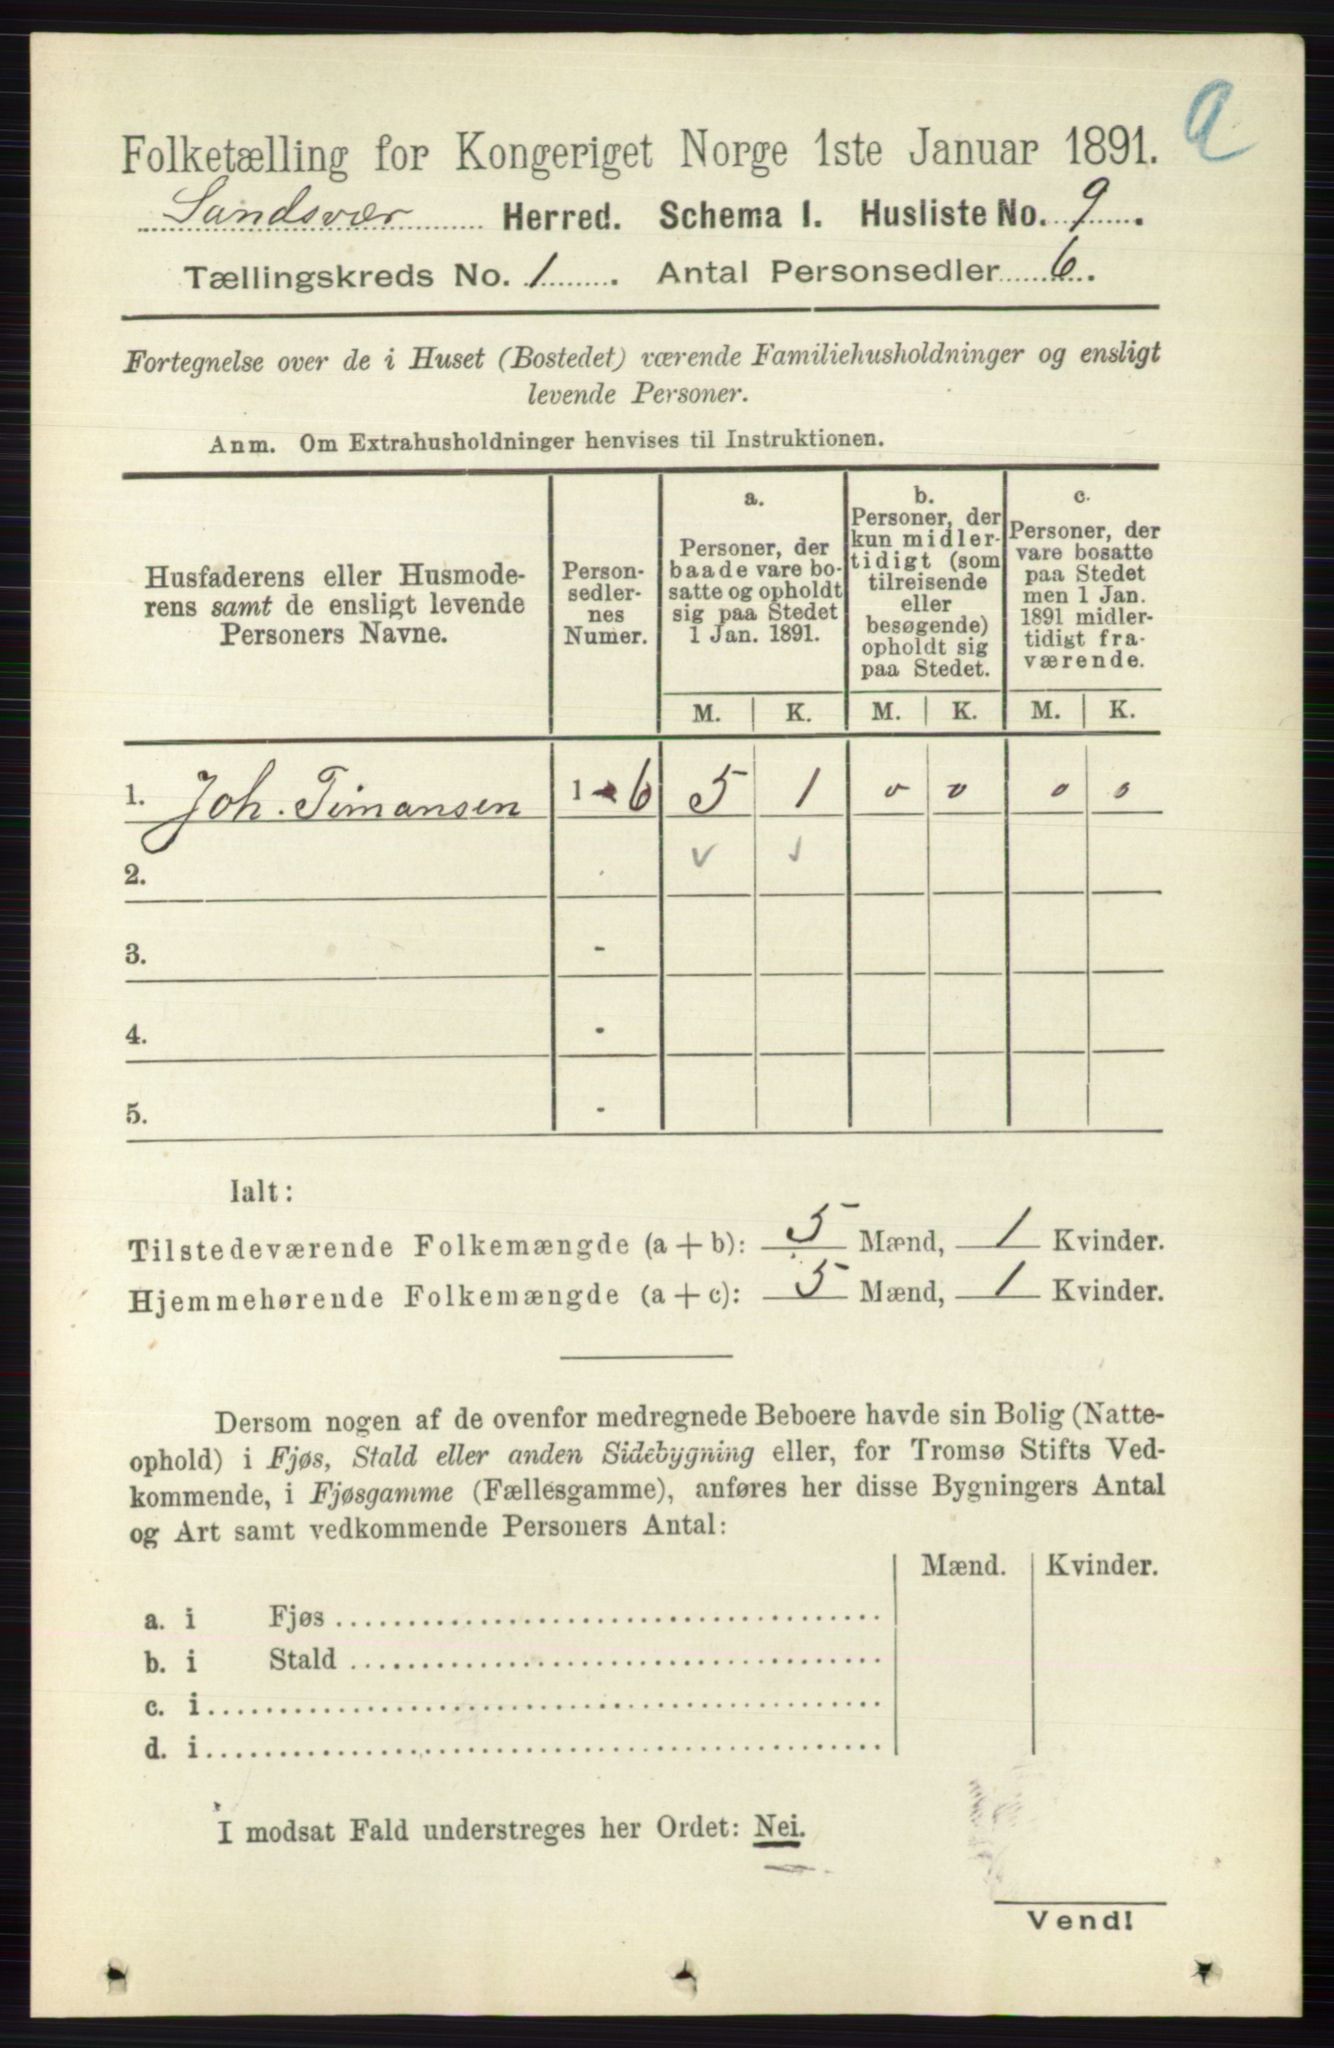 a
Folketælling for Kongeriget Norge 1ste Januar 1891.
Sandsvær Herred. Schema I. Husliste No. 9.
Tællingskreds No. 1. Antal Personsedler 6.
Fortegnelse over de i Huset (Bostedet) værende Familiehusholdninger og ensligt
levende Personer.
Anm. Om Extrahusholdninger henvises til Instruktionen.
Husfaderens eller Husmode-
rens samt de ensligt levende
Personers Navne.
Person-
sedler-
nes
Numer.
a.
Personer, der
baade vare bo-
satte og opholdt
sig paa Stedet
1 Jan. 1891.
b.
Personer, der
kun midler-
tidigt (som
tilreisende
eller
besøgende)
opholdt sig
paa Stedet.
c.
Personer, der
vare bosatte
paa Stedet
men 1 Jan.
1891 midler-
tidigt fra-
værende.
M. K. M. K. M. K.
1. Joh. Timansen 1-6 5 1 0 0 0 0
2.
3. -
4. -
5. -
Ialt:
Tilstedeværende Folkemængde (a + b): 5 Mænd, 1 Kvinder.
Hjemmehørende Folkemængde (a + c): 5 Mænd, 1 Kvinder.
Dersom nogen af de ovenfor medregnede Beboere havde sin Bolig (Natte-
ophold) i Fjøs, Stald eller anden Sidebygning eller, for Tromsø Stifts Ved-
kommende, i Fjøsgamme (Fællesgamme), anføres her disse Bygningers Antal
og Art samt vedkommende Personers Antal:
Mænd. Kvinder.
a. i Fjøs
b. i Stald
c. i
d. i
I modsat Fald understreges her Ordet: Nei.
Vend!